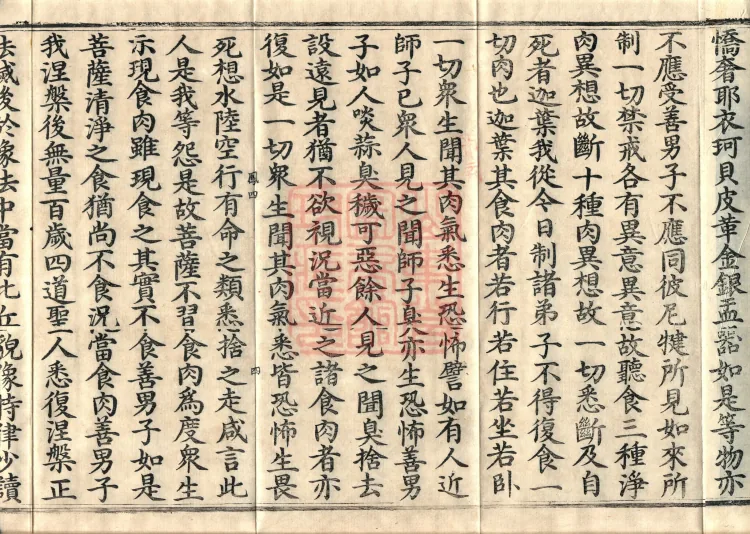 憍奢耶衣珂貝皮革金銀盂器如是等物亦
不應受善男子不應同彼尼犍所見如來所
制一切禁戒各有異意異意故聽食三種淨
肉異想故斷十種肉異想故一切悉斷及自
死者迦葉我從今日制諸弟子不得復食一
切肉也迦葉其食肉者若行若住若坐若卧
一切衆生聞其肉氣悉生恐怖譬如有人近
師子已衆人見之聞師子臭亦生恐怖善男
子如人啖蒜臭穢可惡餘人見之聞臭捨去
設遠見者猶不欲視況當近之諸食肉者亦
復如是一切衆生聞其肉氣悉皆恐怖生畏
死想水陸空行有命之類悉捨之走咸言此
人是我等怨是故菩薩不習食肉爲度衆生
示現食肉雖現食之其實不食善男子如是
菩薩清淨之食猶尚不食況當食肉善男子
我涅槃後無量百歲四道聖人悉復涅槃正
法滅後於像法中當有比丘貌像持律少讀